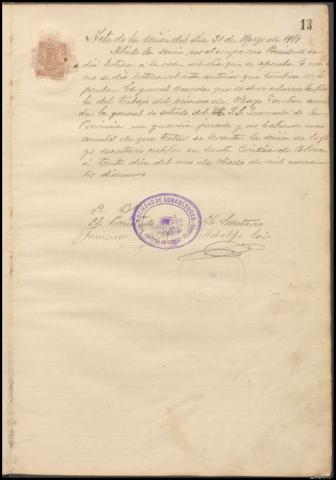 13
Acta de la sesión del día 30 de Marzo de 1919
Abierta la sesión por el compañero Presidente se
dió lectura a la orden del día que se aprueba lo mis
mo se dió lectura al acta anterior que también se a
prueba. En general acuerda que se
del trabajo del primero de Mayo También acuer
da la general se solicite del Sr. Gobernador de la
Provincia un guardia jurado y no habiendo mas
asuntos de que tratar se levanta la sesión de lo que
yo secretario certifico en Santa Cruz
a treinta días del mes de Marzo de mil novecien
tos diecinueve
Vº Bº
El Presidente El Secretario
SOCIEDAD DE AGRICULTORES
Francisco Adolfo